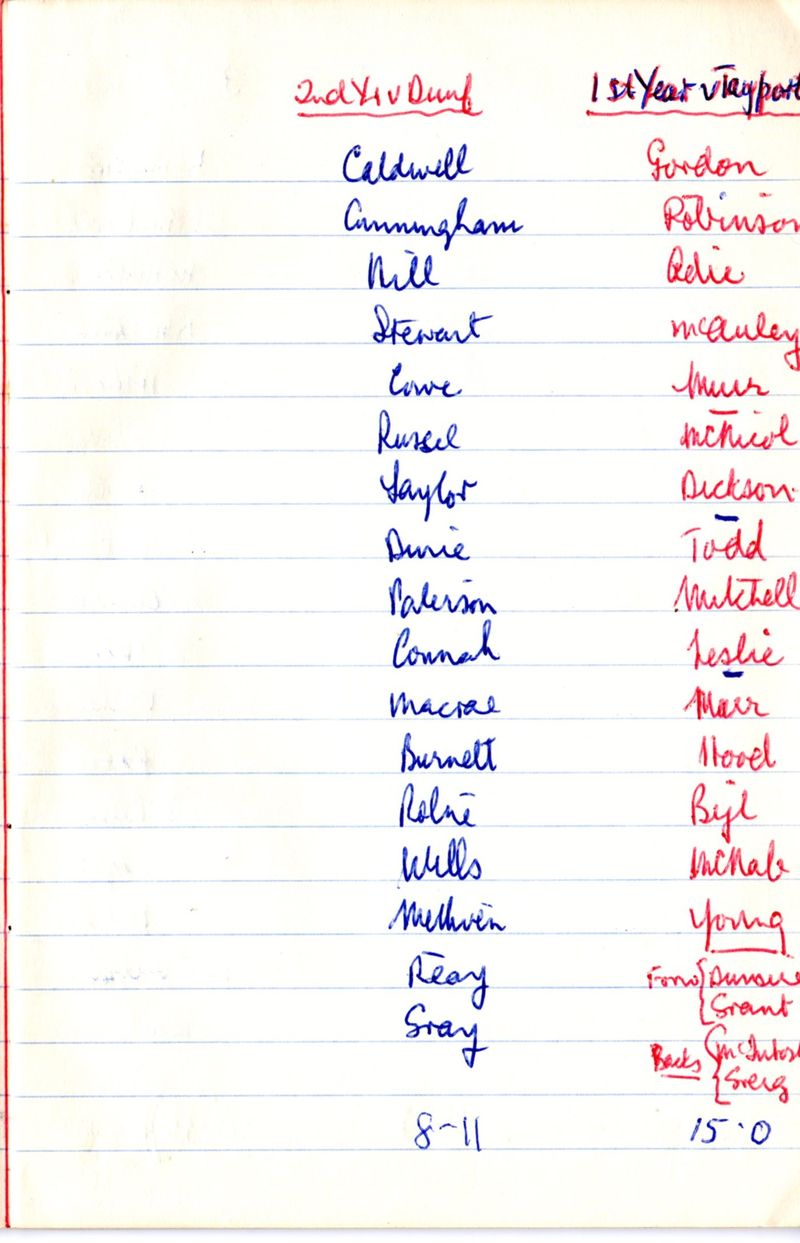 2nd Yr v Dunf
Caldwell
Cunningham
Hill
Stewart
Cowe
Russel
Taylor
Durie
Paterson
Connah
Macrae
Burnett
Robbie
Wells
Methven
Reay
Gray
8-11
1st Year v Tayport
Gordon
Robinson
Adie
McAuley
Muir
McNicol
Dickson
Todd
Mitchell
Leslie
Marr
Hood
Bijl
McNab
Young
Grant
Backs McIntosh
Greig
15.0